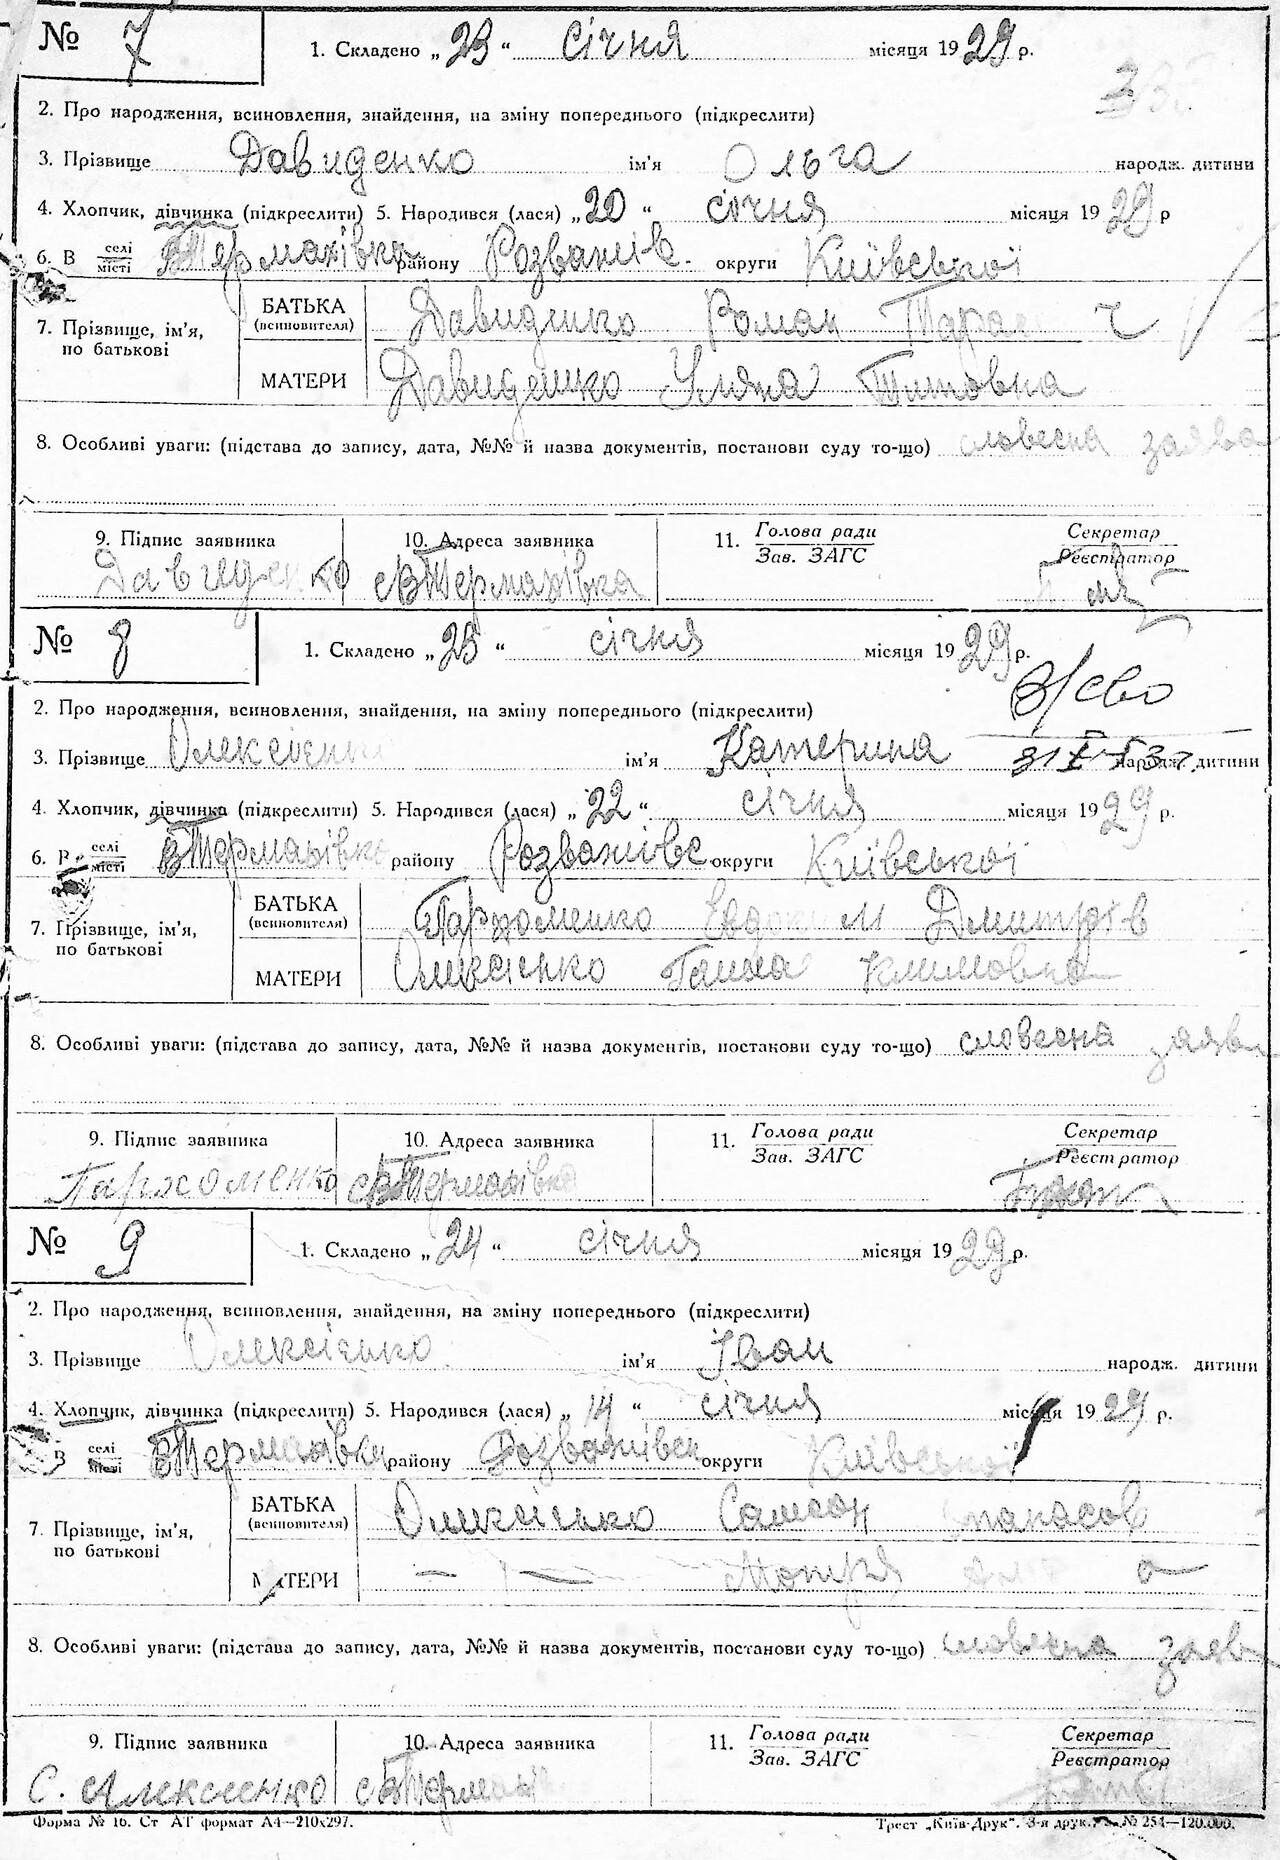 № 7 1. Складено „23“ січня місяця 1929 р.
2. Про народження, всиновлення, знайдення, на зміну попереднього (підкреслити)
3. Прізвище Давиденко ім'я Ольга народж. дитини
4. Хлопчик, дівчинка (підкреслити) 5. Народився (лася) „20“ січня місяця 1929 р
6. В селі місті В Термахівка району Розважів. округи Київської
7. Прізвище, ім'я, по батькові
БАТЬКА (всиновителя) Давиденко Роман Тарас ч
МАТЕРИ Давиденко Уляна Титовна
8. Особливі уваги: (підстава до запису, дата, №№ й назва документів, постанови суду то-що) словесна заява
9. Підпис заявника 10. Адреса заявника 11. Голова ради Зав. ЗАГС Секретар Реєстратор
Давиденко с В Термахівка
№ 8 1. Складено „23“ січня місяця 1929 р.
З/сво
2. Про народження, всиновлення, знайдення, на зміну попереднього (підкреслити)
3. Прізвище Олексієнко ім'я Катерина народж. дитини
4. Хлопчик, дівчинка (підкреслити) 5. Народився (лася) „22“ січня місяця 1929 р.
6. В селі місті В Термахівка району Розважівс округи Київської
7. Прізвище, ім'я, по батькові
БАТЬКА (всиновителя) Пархоменко Евдоким Дмитрів
МАТЕРИ Олексієнко Ганна Климовна
8. Особливі уваги: (підстава до запису, дата, №№ й назва документів, постанови суду то-що) словесна заява
9. Підпис заявника 10. Адреса заявника 11. Голова ради Зав. ЗАГС Секретар Реєстратор
Пархоменко с В Термахівка
№ 9 1. Складено „24“ січня місяця 1929 р.
2. Про народження, всиновлення, знайдення, на зміну попереднього (підкреслити)
3. Прізвище Олексієнко ім'я Іван народж. дитини
4. Хлопчик, дівчинка (підкреслити) 5. Народився (лася) „14“ січня місяця 1929 р.
6. В селі місті В Термахівка району Розважівськ округи Київської
7. Прізвище, ім'я, по батькові
БАТЬКА (всиновителя) Олексієнко Самсон Опанасов
МАТЕРИ — „ — Мотря
8. Особливі уваги: (підстава до запису, дата, №№ й назва документів, постанови суду то-що) словесна заяв
9. Підпис заявника 10. Адреса заявника 11. Голова ради Зав. ЗАГС Секретар Реєстратор
С. Алексиенко с В Термахів
Форма № 16. Ст АТ формат А4—210x297. Трест „Київ-Друк“. 3-я друк. № 254—120.000.